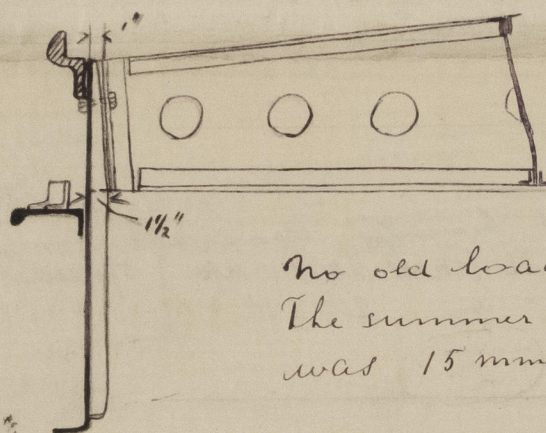 1"
1½"
No old loa
The summer
was 15 mm